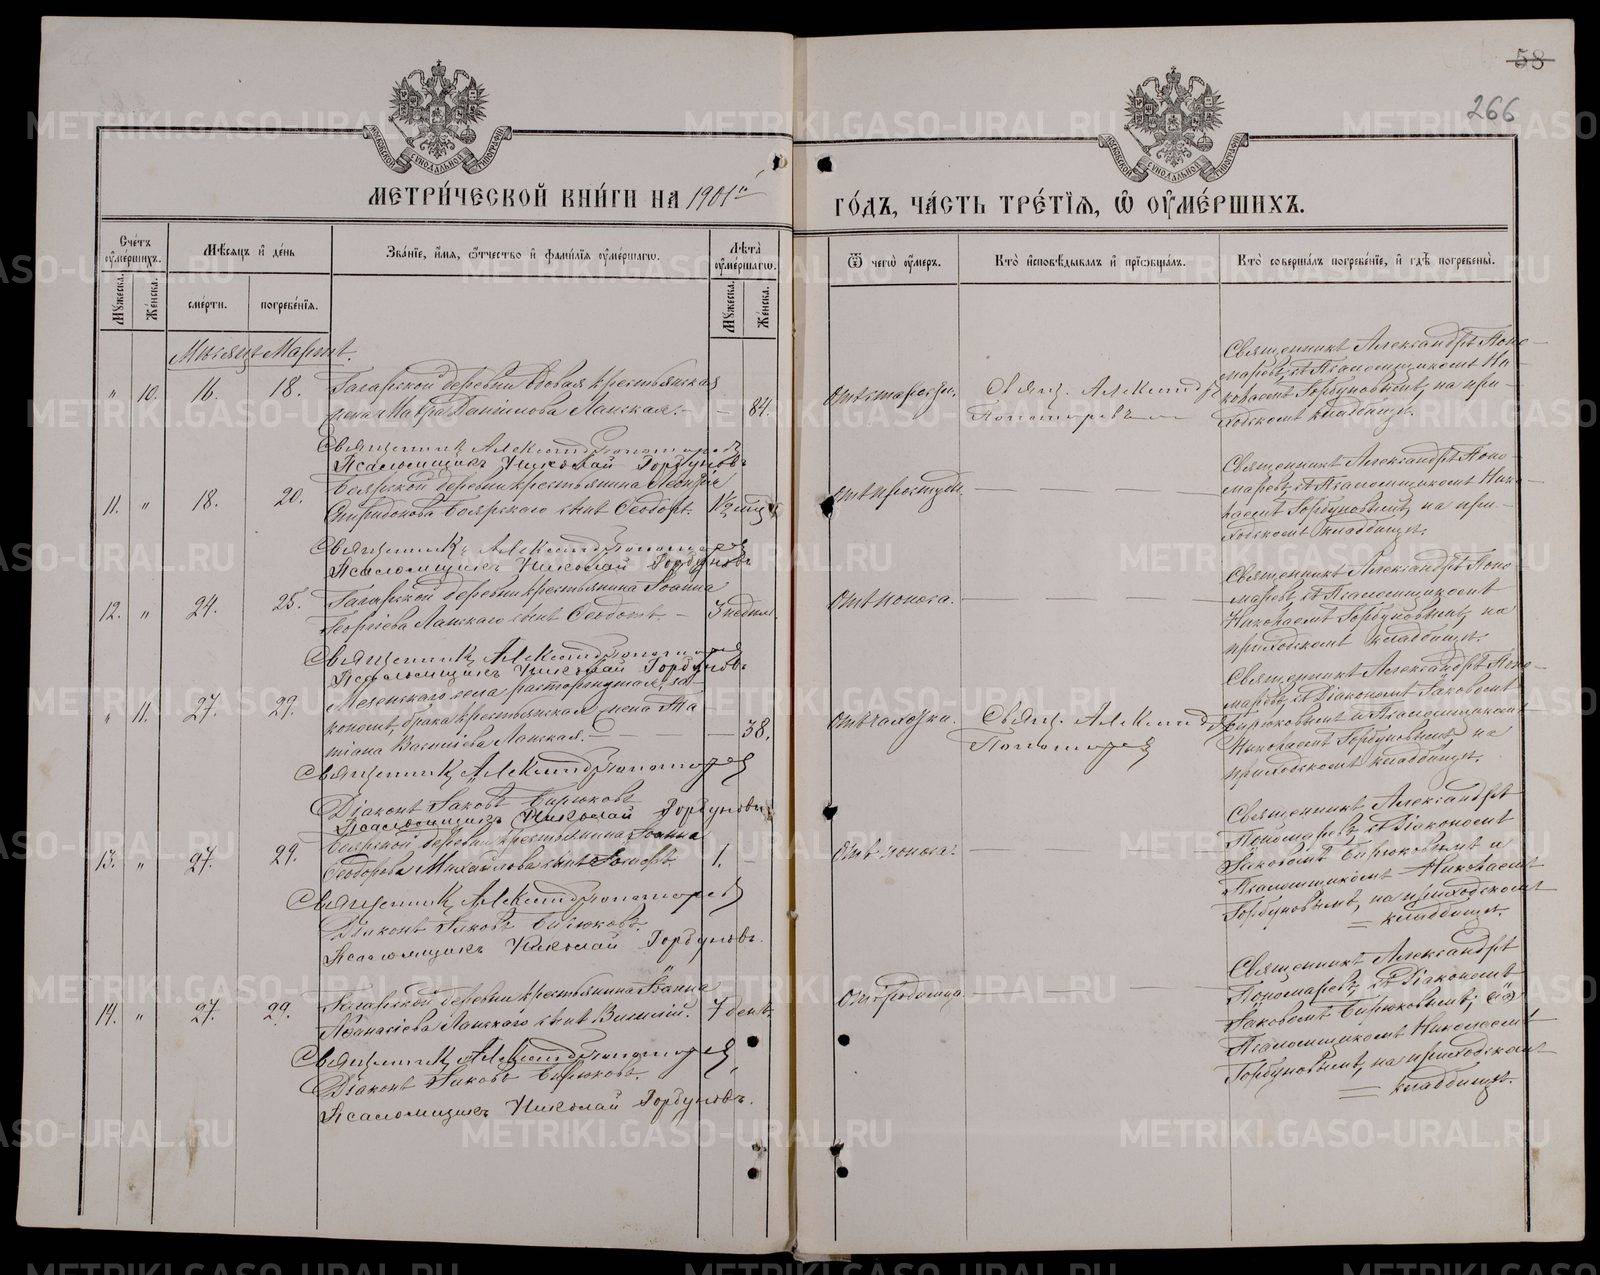 58
266
МОСКОВСКОЙ СИНОДАЛЬНОЙ ТИПОГРАФІИ
МОСКОВСКОЙ СИНОДАЛЬНОЙ ТИПОГРАФІИ
МЕТРИ́ЧЕСКОЙ КНИ́ГИ НА 1901й
ГО́ДЪ, ЧА́СТЬ ТРЕ́ТІѦ, Ѡ ОУМЕ́РШИХЪ.
Сче́тъ оуме́ршихъ.
Мѣ́сяцъ и де́нь
Зва́ніе, и́мя, о́тчество и фами́лія оуме́ршагѡ.
Лѣ́та оуме́ршагѡ.
Ѿ чегѡ̀ оу́меръ.
Кто̀ исповѣ́дывалъ и пріѡбща́лъ.
Кто̀ соверша́лъ погребе́ніе, и гдѣ̀ погребены̀.
Му́жеска.
Же́нска.
сме́рти.
погребе́нія.
Му́жеска.
Же́нска.
Мѣсяцъ Мартъ.
" 10. 16. 18.
деревни вдовая крестьянская
жена Мавра Даніилова Ланская. — — 84.
Отъ старости.
Свящ. Александръ
Пономаревъ
Священникъ Александръ Поно-
маревъ, съ Псаломщикомъ Ни-
колаемъ Горбуновымъ, на при-
ходскомъ кладбищѣ.
Священникъ Александръ Пономаревъ
Псаломщикъ Николай Горбуновъ
11. " 18. 20.
Боярской деревни крестьянина
Спиридонова Боярскаго сынъ Ѳеодоръ.
Отъ простуды
Священникъ Александръ Поно-
маревъ, съ Псаломщикомъ Нико-
лаемъ Горбуновымъ, на при-
ходскомъ кладбищѣ.
Священникъ Александръ Пономаревъ
Псаломщикъ Николай Горбуновъ
12. " 24. 25.
деревни крестьянина Іоанна
Георгіева Ланскаго сынъ Ѳеодотъ. — 3 недѣли.
Отъ поноса.
Священникъ Александръ Поно-
маревъ, съ Псаломщикомъ
Николаемъ Горбуновымъ, на
приходскомъ кладбищѣ.
Священникъ Александръ Пономаревъ
Псаломщикъ Николай Горбуновъ
" 11. 27. 29.
Мезенскаго села расторгнутая, за-
кономъ, брака крестьянская жена Та-
тіана Василіева Ланская. — — 38.
Отъ чахотки.
Свящ. Александръ
Пономаревъ
Священникъ Александръ Поно-
маревъ, съ Діакономъ Іаковомъ
Бирюковымъ и Псаломщикомъ
Николаемъ Горбуновымъ, на
приходскомъ кладбищѣ.
Священникъ Александръ Пономаревъ
Діаконъ Іаковъ Бирюковъ
Псаломщикъ Николай Горбуновъ
13. " 27. 29.
Боярской деревни крестьянина Іоанна
Ѳеодорова Михайлова сынъ Іосифъ. 1. —
Отъ поноса.
Священникъ Александръ
Пономаревъ, съ Діакономъ
Іаковомъ Бирюковымъ и
Псаломщикомъ Николаемъ
Горбуновымъ, на приходскомъ
кладбищѣ.
Священникъ Александръ Пономаревъ
Діаконъ Іаковъ Бирюковъ.
Псаломщикъ Николай Горбуновъ.
14. " 27. 29.
деревни крестьянина Іоанна
Аѳанасіева Ланскаго сынъ Василій. 7 дней.
Отъ родимца
Священникъ Александръ
Пономаревъ, съ Діакономъ
Іаковомъ Бирюковымъ, съ
Псаломщикомъ Николаемъ
Горбуновымъ, на приходскомъ
кладбищѣ.
Священникъ Александръ Пономаревъ
Діаконъ Іаковъ Бирюковъ.
Псаломщикъ Николай Горбуновъ.
METRIKI.GASO-URAL.RU